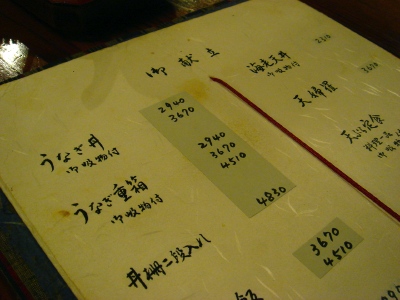 御献立
うなぎ丼
御吸物付
2940
3670
うなぎ重箱
御吸物付
2940
3670
4510
丼櫃二段入れ
4830
3670
4510
海老天丼
御吸物付
天婦羅
天ぷら定食